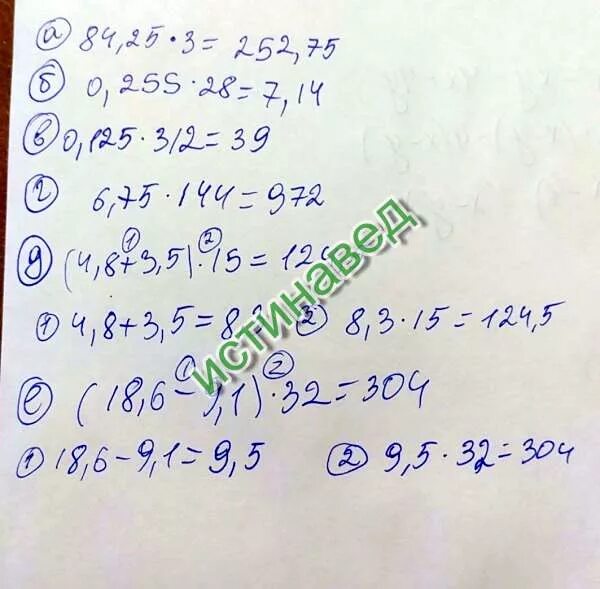 а) 84,25·3 = 252,75
б) 0,255·28 = 7,14
в) 0,125·312 = 39
г) 6,75·144 = 972
д) (4,8+3,5)·15 = 124
1) 4,8+3,5 = 8,3 2) 8,3·15 = 124,5
е) (18,6-9,1)·32 = 304
1) 18,6-9,1 = 9,5 2) 9,5·32 = 304
истинавед